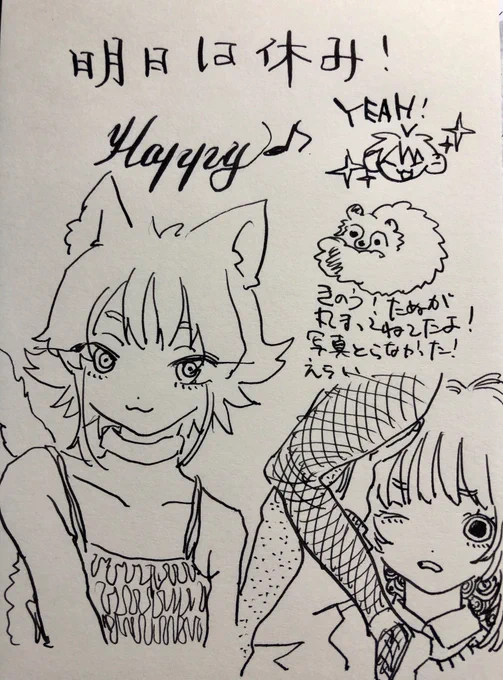 明日は休み!
YEAH!
Happy♪
きのう!たぬが
丸まってねてたよ!
写真とらなかった!
えらい